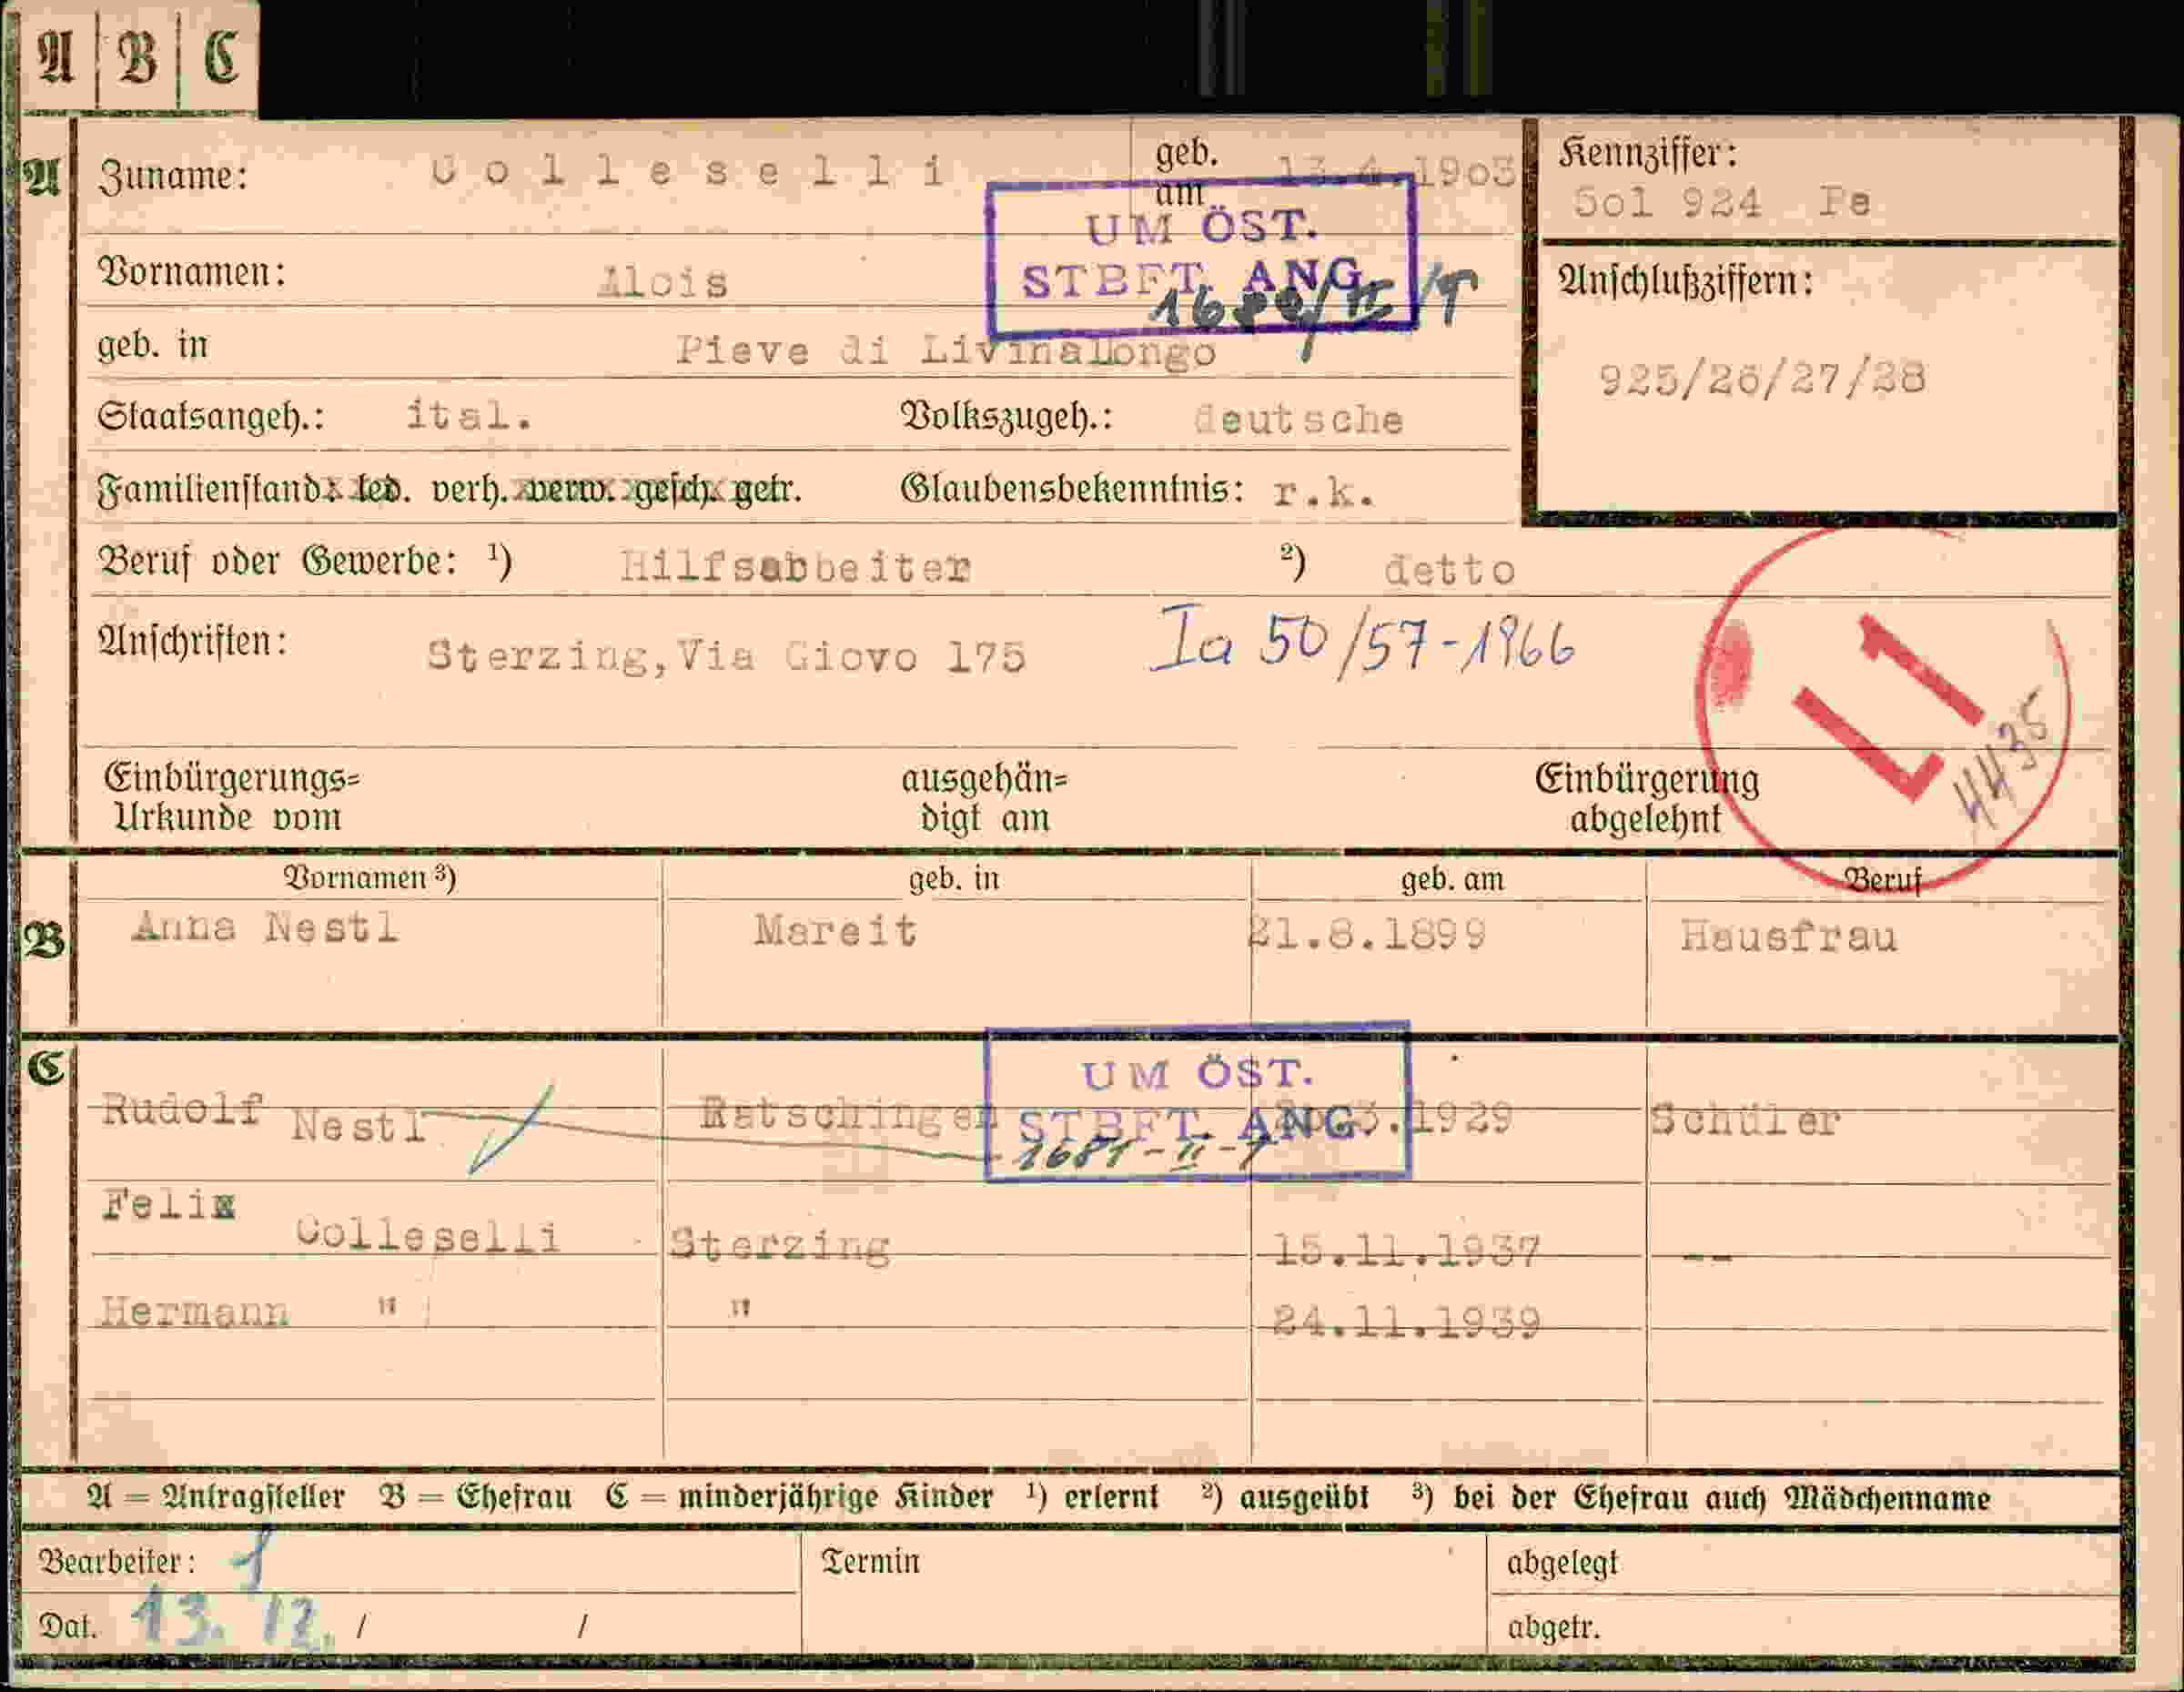 A B C
A Zuname: Colleselli geb. am 13.4.1903 Kennziffer:
Sol 924 Pe
UM ÖST.
STBFT. ANG.
Vornamen: Alois
Anschlußziffern:
geb. in Pieve di Livinallongo
925/26/27/28
Staatsangeh.: ital. Volkszugeh.: deutsche
Familienstand: led. verh. verw. gesch. getr. Glaubensbekenntnis: r.k.
Beruf oder Gewerbe: 1) Hilfsabbeiter 2) detto
Anschriften: Sterzing, Via Giovo 175 Ia 50/57-1966
L1
4435
Einbürgerungs= ausgehän= Einbürgerung
Urkunde vom digt am abgelehnt
Vornamen 3) geb. in geb. am Beruf
B Anna Nestl Mareit 21.8.1899 Hausfrau
C
UM ÖST.
Rudolf Nestl Ratschingen 1929 Schüler
STBFT. ANG.
1681-II-1
Felix
Colleselli Sterzing 15.11.1937 --
Hermann " " 24.11.1939
A = Antragsteller B = Ehefrau C = minderjährige Kinder 1) erlernt 2) ausgeübt 3) bei der Ehefrau auch Mädchenname
Bearbeiter: Termin abgelegt
Dat. 13. 12. / / abgetr.